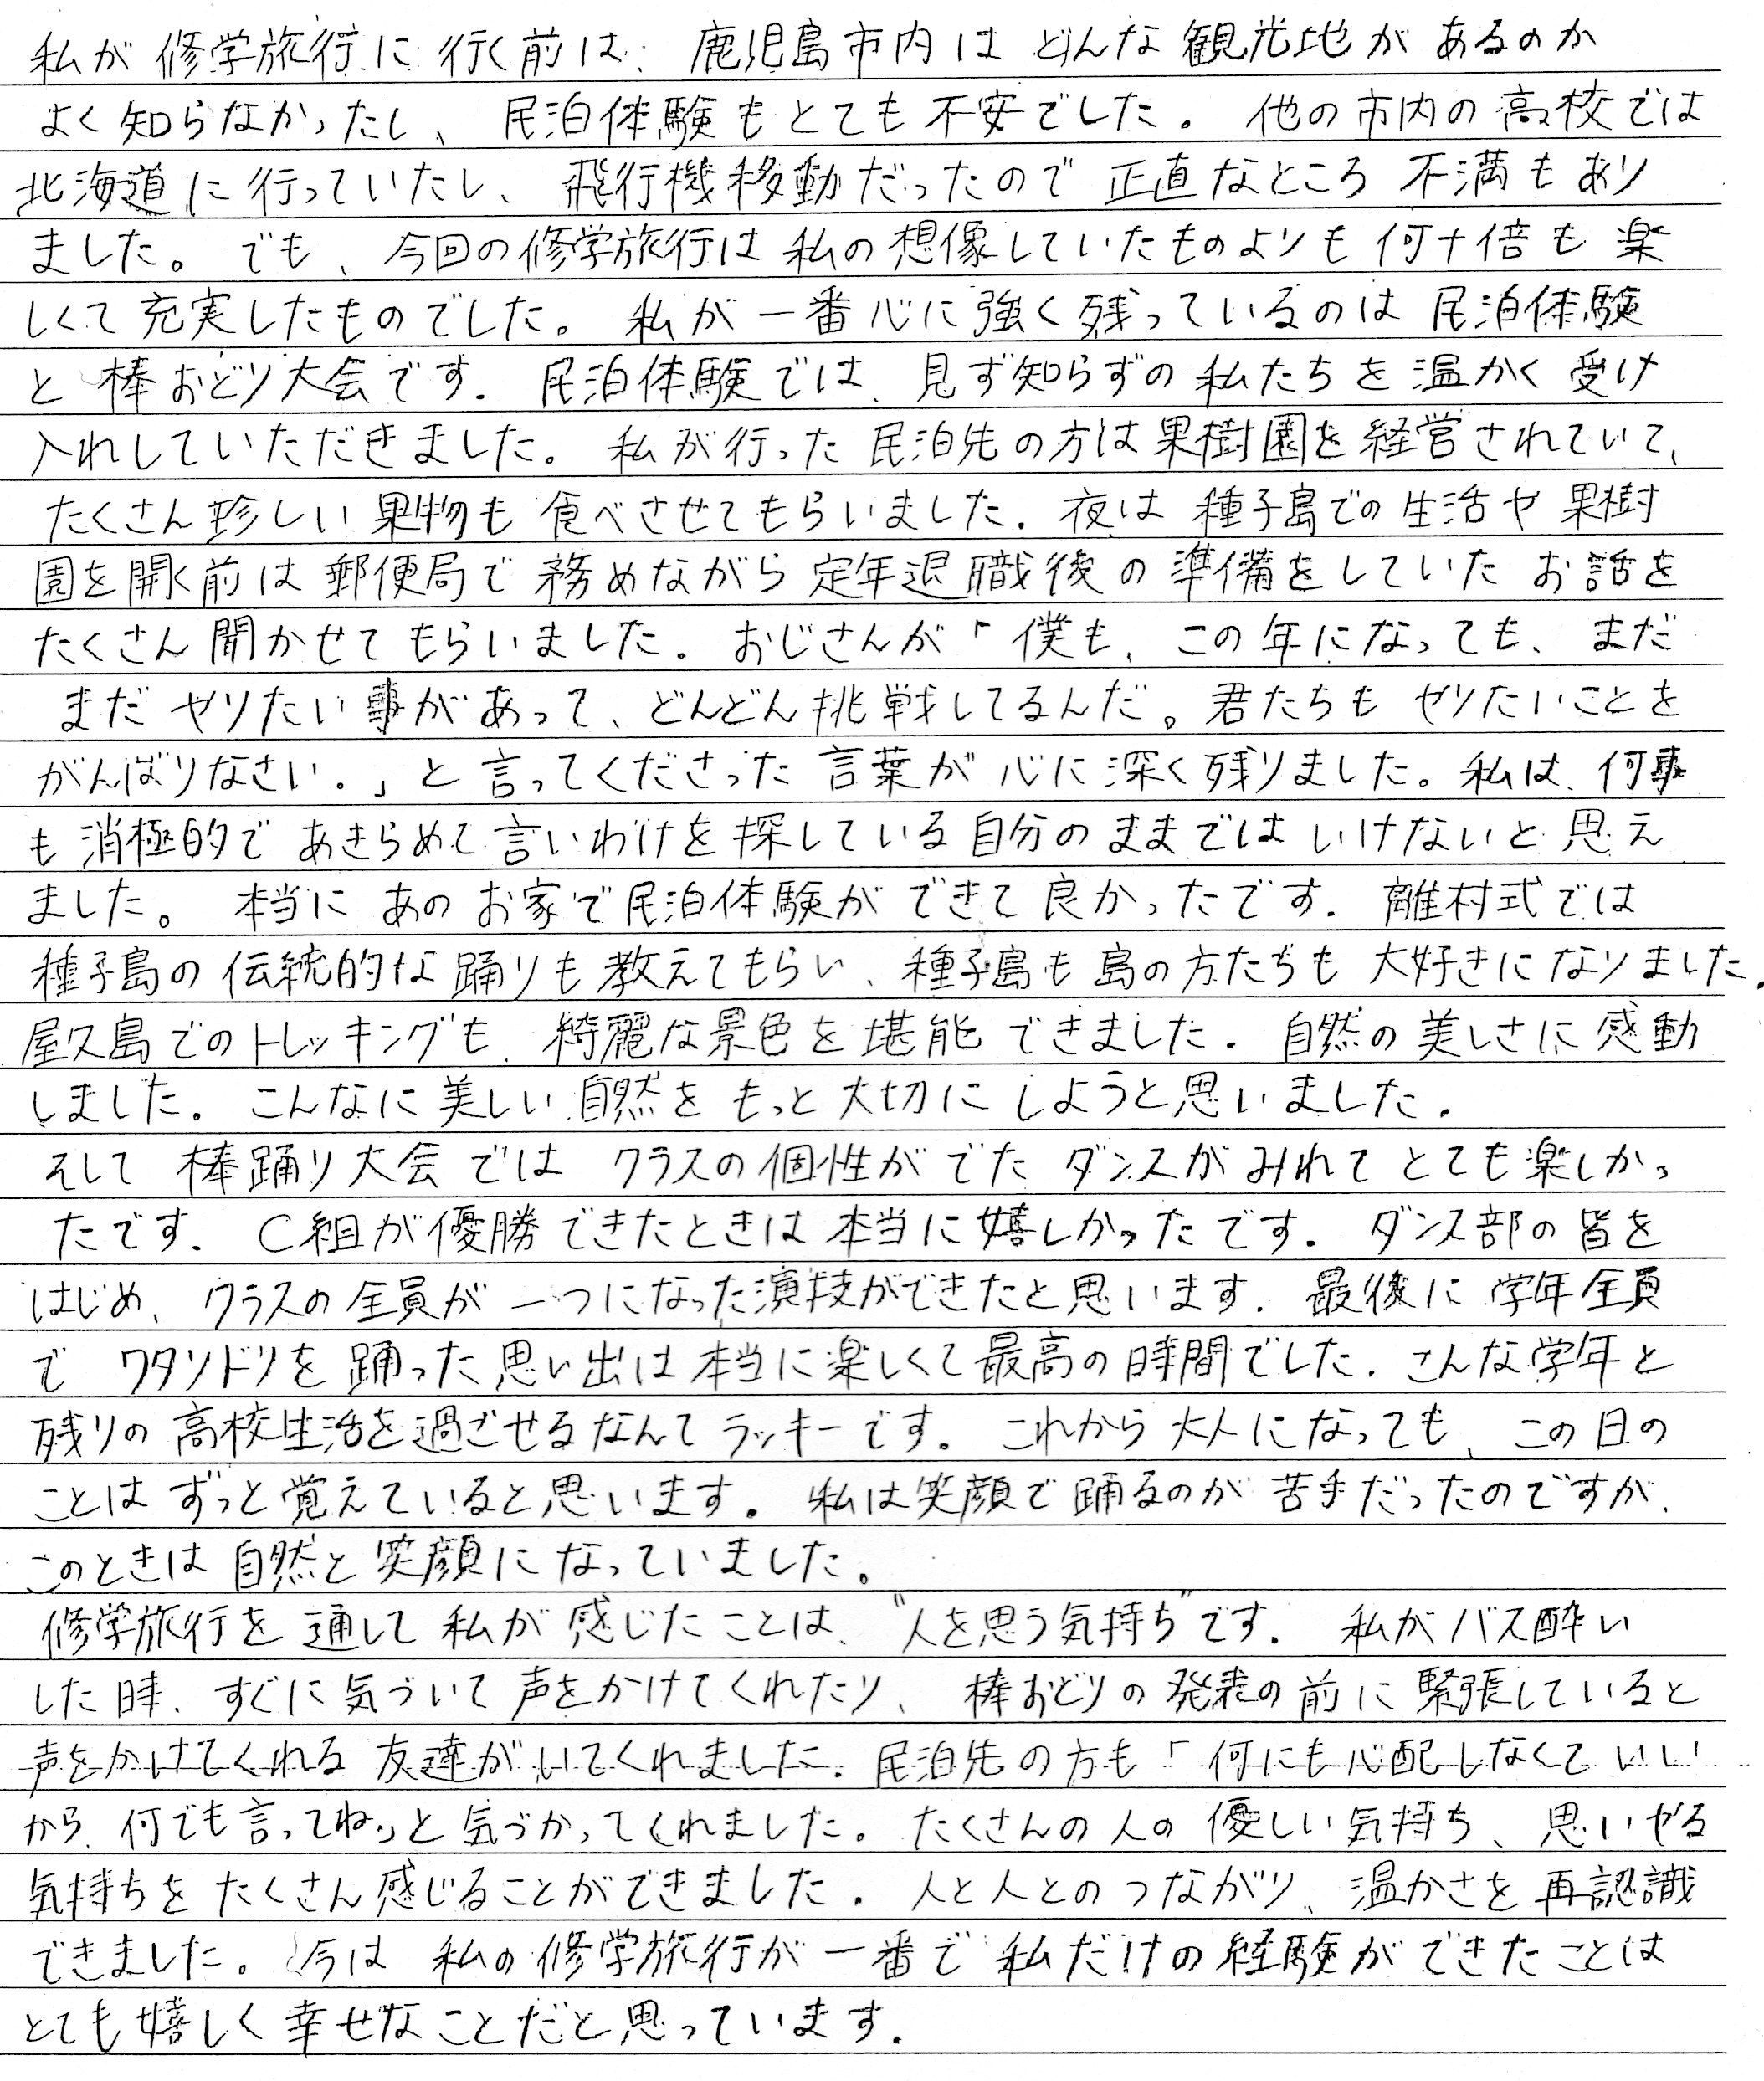 私が修学旅行に行く前は、鹿児島市内はどんな観光地があるのか
よく知らなかったし、民泊体験もとても不安でした。他の市内の高校では
北海道に行っていたし、飛行機移動だったので正直なところ不満もあり
ました。でも、今回の修学旅行は私の想像していたものよりも何十倍も楽
しくて充実したものでした。私が一番心に強く残っているのは民泊体験
と棒おどり大会です。民泊体験では、見ず知らずの私たちを温かく受け
入れしていただきました。私が行った民泊先の方は果樹園を経営されていて、
たくさん珍しい果物も食べさせてもらいました。夜は種子島での生活や果樹
園を開く前は郵便局で務めながら定年退職後の準備をしていたお話を
たくさん聞かせてもらいました。おじさんが「僕も、この年になっても、まだ
まだやりたい事があって、どんどん挑戦してるんだ。君たちもやりたいことを
がんばりなさい。」と言ってくださった言葉が心に深く残りました。私は、何事
も消極的であきらめて言いわけを探している自分のままではいけないと思え
ました。本当にあのお家で民泊体験ができて良かったです。離村式では
種子島の伝統的な踊りも教えてもらい、種子島も島の方たちも大好きになりました。
屋久島でのトレッキングも、綺麗な景色を堪能できました。自然の美しさに感動
しました。こんなに美しい自然をもっと大切にしようと思いました。
そして棒踊り大会ではクラスの個性がでたダンスがみれてとても楽しかっ
たです。C組が優勝できたときは本当に嬉しかったです。ダンス部の皆を
はじめ、クラスの全員が一つになった演技ができたと思います。最後に学年全員
でワタリドリを踊った思い出は本当に楽しくて最高の時間でした。こんな学年と
残りの高校生活を過ごせるなんてラッキーです。これから大人になっても、この日の
ことはずっと覚えていると思います。私は笑顔で踊るのが苦手だったのですが、
このときは自然と笑顔になっていました。
修学旅行を通して私が感じたことは、"人を思う気持ち"です。私がバス酔い
した時、すぐに気づいて声をかけてくれたり、棒おどりの発表の前に緊張していると
声をかけてくれる友達がいてくれました。民泊先の方も「何にも心配しなくていい
から、何でも言ってね。」と気づかってくれました。たくさんの人の優しい気持ち、思いやる
気持ちをたくさん感じることができました。人と人とのつながり、温かさを再認識
できました。今は私の修学旅行が一番で私だけの経験ができたことは
とても嬉しく幸せなことだと思っています。